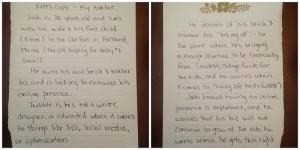 Kate's Copy - My Avatar
Josh is 38 years old and lives
with his wife & his first child
in the Old Port in Portland,
Maine (though hoping for baby #2
soon!)
He owns his own brick &
and is looking to enhance his
online presence.
Trouble is, he's not a writer,
designer, or educated when it comes
to things like SEO, social media,
or optimization.
He dreams of his brick &
mortar biz "taking off" - to
the point where he's bringing
in enough revenue to be financially
free (
the kids, and no worries when it
comes to
Josh knows having an online
presence is important, and he
worries that his biz will not
continue to grow at the rate he
wants unless he gets this right